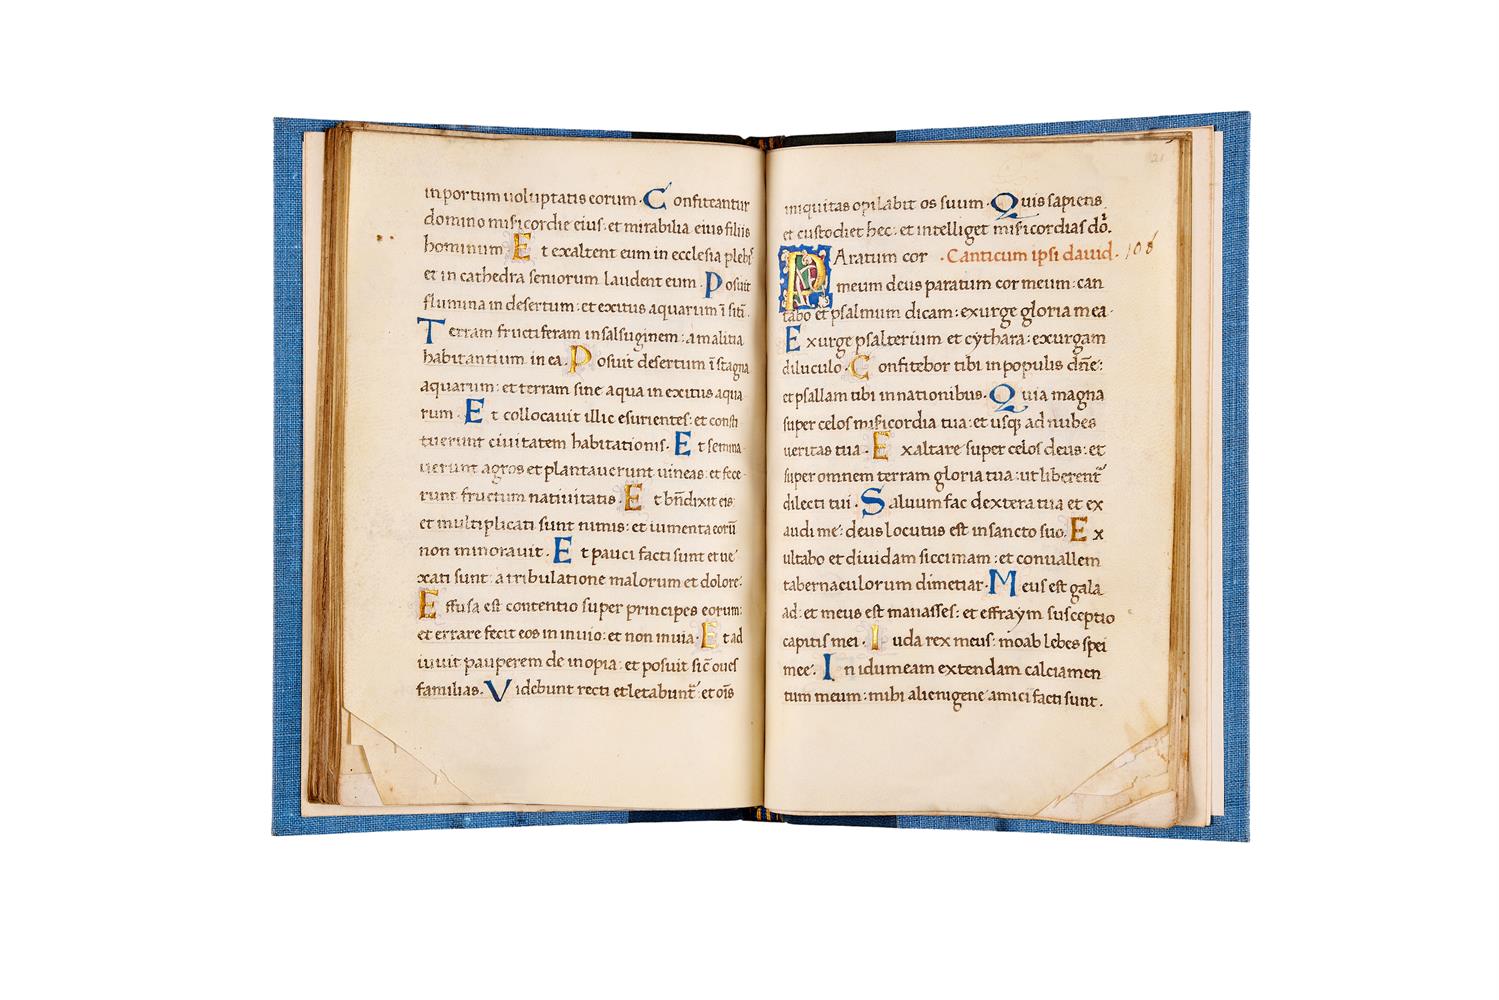 in portum uoluptatis eorum · Confiteantur
domino misicordie eius: et mirabilia eius filiis
hominum Et exaltent eum in ecclesia plebˢ
et in cathedra seniorum laudent eum · Posuit
flumina in desertum: et exitus aquarum ī sitī.
Terram fructiferam in salsuginem: a malitia
habitantium in ea · Posuit desertum ī stagna
aquarum: et terram sine aqua in exitus aqua
rum · Et collocauit illic esurientes: et consti
tuerunt ciuitatem habitationis · Et semina
uerunt agros et plantauerunt uineas: et fece
runt fructum natiuitatis · Et bn̄dixit eis
et multiplicati sunt nimis: et iumenta eorū
non minorauit · Et pauci facti sunt et ue
xati sunt: a tribulatione malorum et dolore:
Effusa est contentio super principes eorum:
et errare fecit eos in inuio: et non inuia · Et ad
iuuit pauperem de inopia: et posuit sic̄ oues
familias · Videbunt recti et letabunt᷑: et oīs
21
iniquitas opilabit os suum · Quis sapiens
et custodiet hec: et intelliget misicordias dōi.
PAratum cor · Canticum ipsi dauid · 108
meum deus paratum cor meum: can
tabo et psalmum dicam: exurge gloria mea ·
Exurge psalterium et cythara: exurgam
diluculo · Confitebor tibi in populis dn̄e:
et psallam tibi in nationibus · Quia magna
super celos misicordia tua: et usq; ad nubes
ueritas tua · Exaltare super celos deus: et
super omnem terram gloria tua: ut liberent᷑
dilecti tui · Saluum fac dextera tua et ex
audi me: deus locutus est in sancto suo. Ex
ultabo et diuidam siccimam: et conuallem
tabernaculorum dimetiar · Meus est gala
ad: et meus est manasses: et effraym susceptio
capitis mei · Iuda rex meus: moab lebes spei
mee · In idumeam extendam calciamen
tum meum: mihi alienigene amici facti sunt.